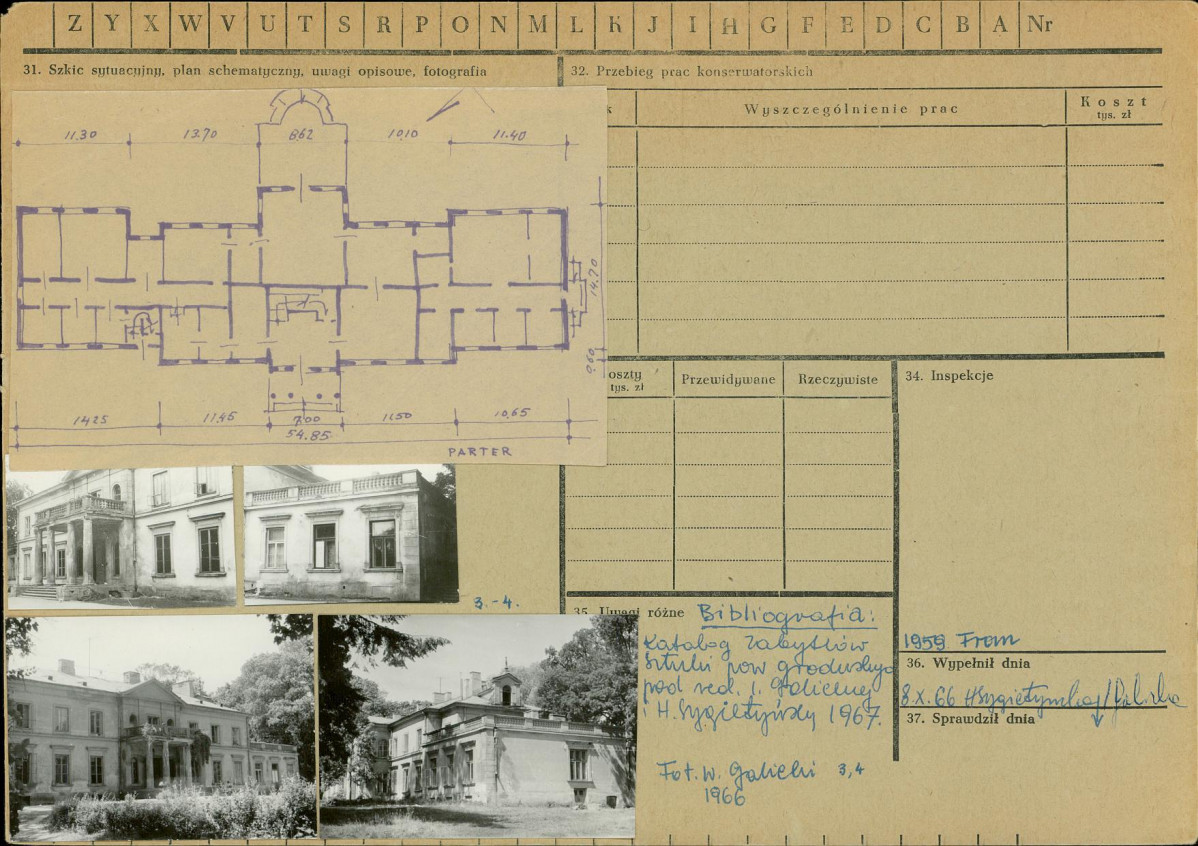 Z Y X W V U T S R P O N M L K J I H G F E D C B A Nr
31. Szkic sytuacyjny, plan schematyczny, uwagi opisowe, fotografia
32. Przebieg prac konserwatorskich
k
Wyszczególnienie prac
Koszt
tys. zł
11.30 13.70 8.62 10.10 11.40
14.70
0.60
14.25 11.45 7.00 11.50 10.65
54.85
PARTER
oszty
tys. zł
Przewidywane
Rzeczywiste
34. Inspekcje
3.-4.
35. Uwagi różne Bibliografia:
Katalog Zabytków
Sztuki pow grodziskiego
pod red. I. Galickiej
i H. Sygietyńskiej 1967.
Fot. W. Galicki 3,4
1966
1959
36. Wypełnił dnia
8.X.66 H Sygietyńska
37. Sprawdził dnia